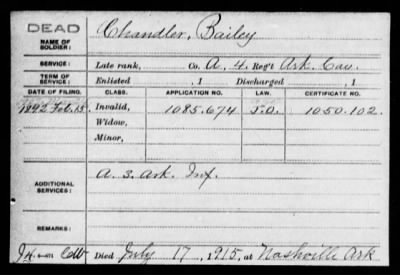 DEAD
NAME OF SOLDIER: Chandler, Bailey
SERVICE: Late rank, Co. A, 4. Reg't Ark. Cav.
TERM OF SERVICE: Enlisted , 1 Discharged , 1
DATE OF FILING. CLASS. APPLICATION NO. LAW. CERTIFICATE NO.
1892 Feb. 15 Invalid, 1085.674 1050.102.
Widow,
Minor,
ADDITIONAL SERVICES: A. 3. Ark. Inf.
REMARKS:
Died July 17, 1915, at Nashville Ark